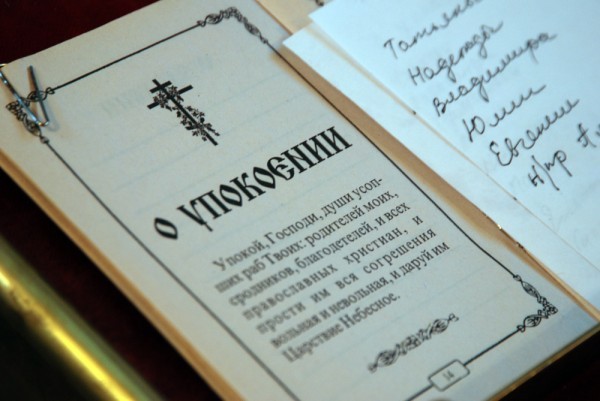 О УПОКОЕНИИ
Упокой, Господи, души усоп-
ших раб Твоих: родителей моих,
сродников, благодетелей, и всех
православных христиан, и
прости им вся согрешения
вольная и невольная, и даруй им
Царствие Небесное.
14
Татьяны
Надежды
Владимира
Юлии
Евгении
н/пр